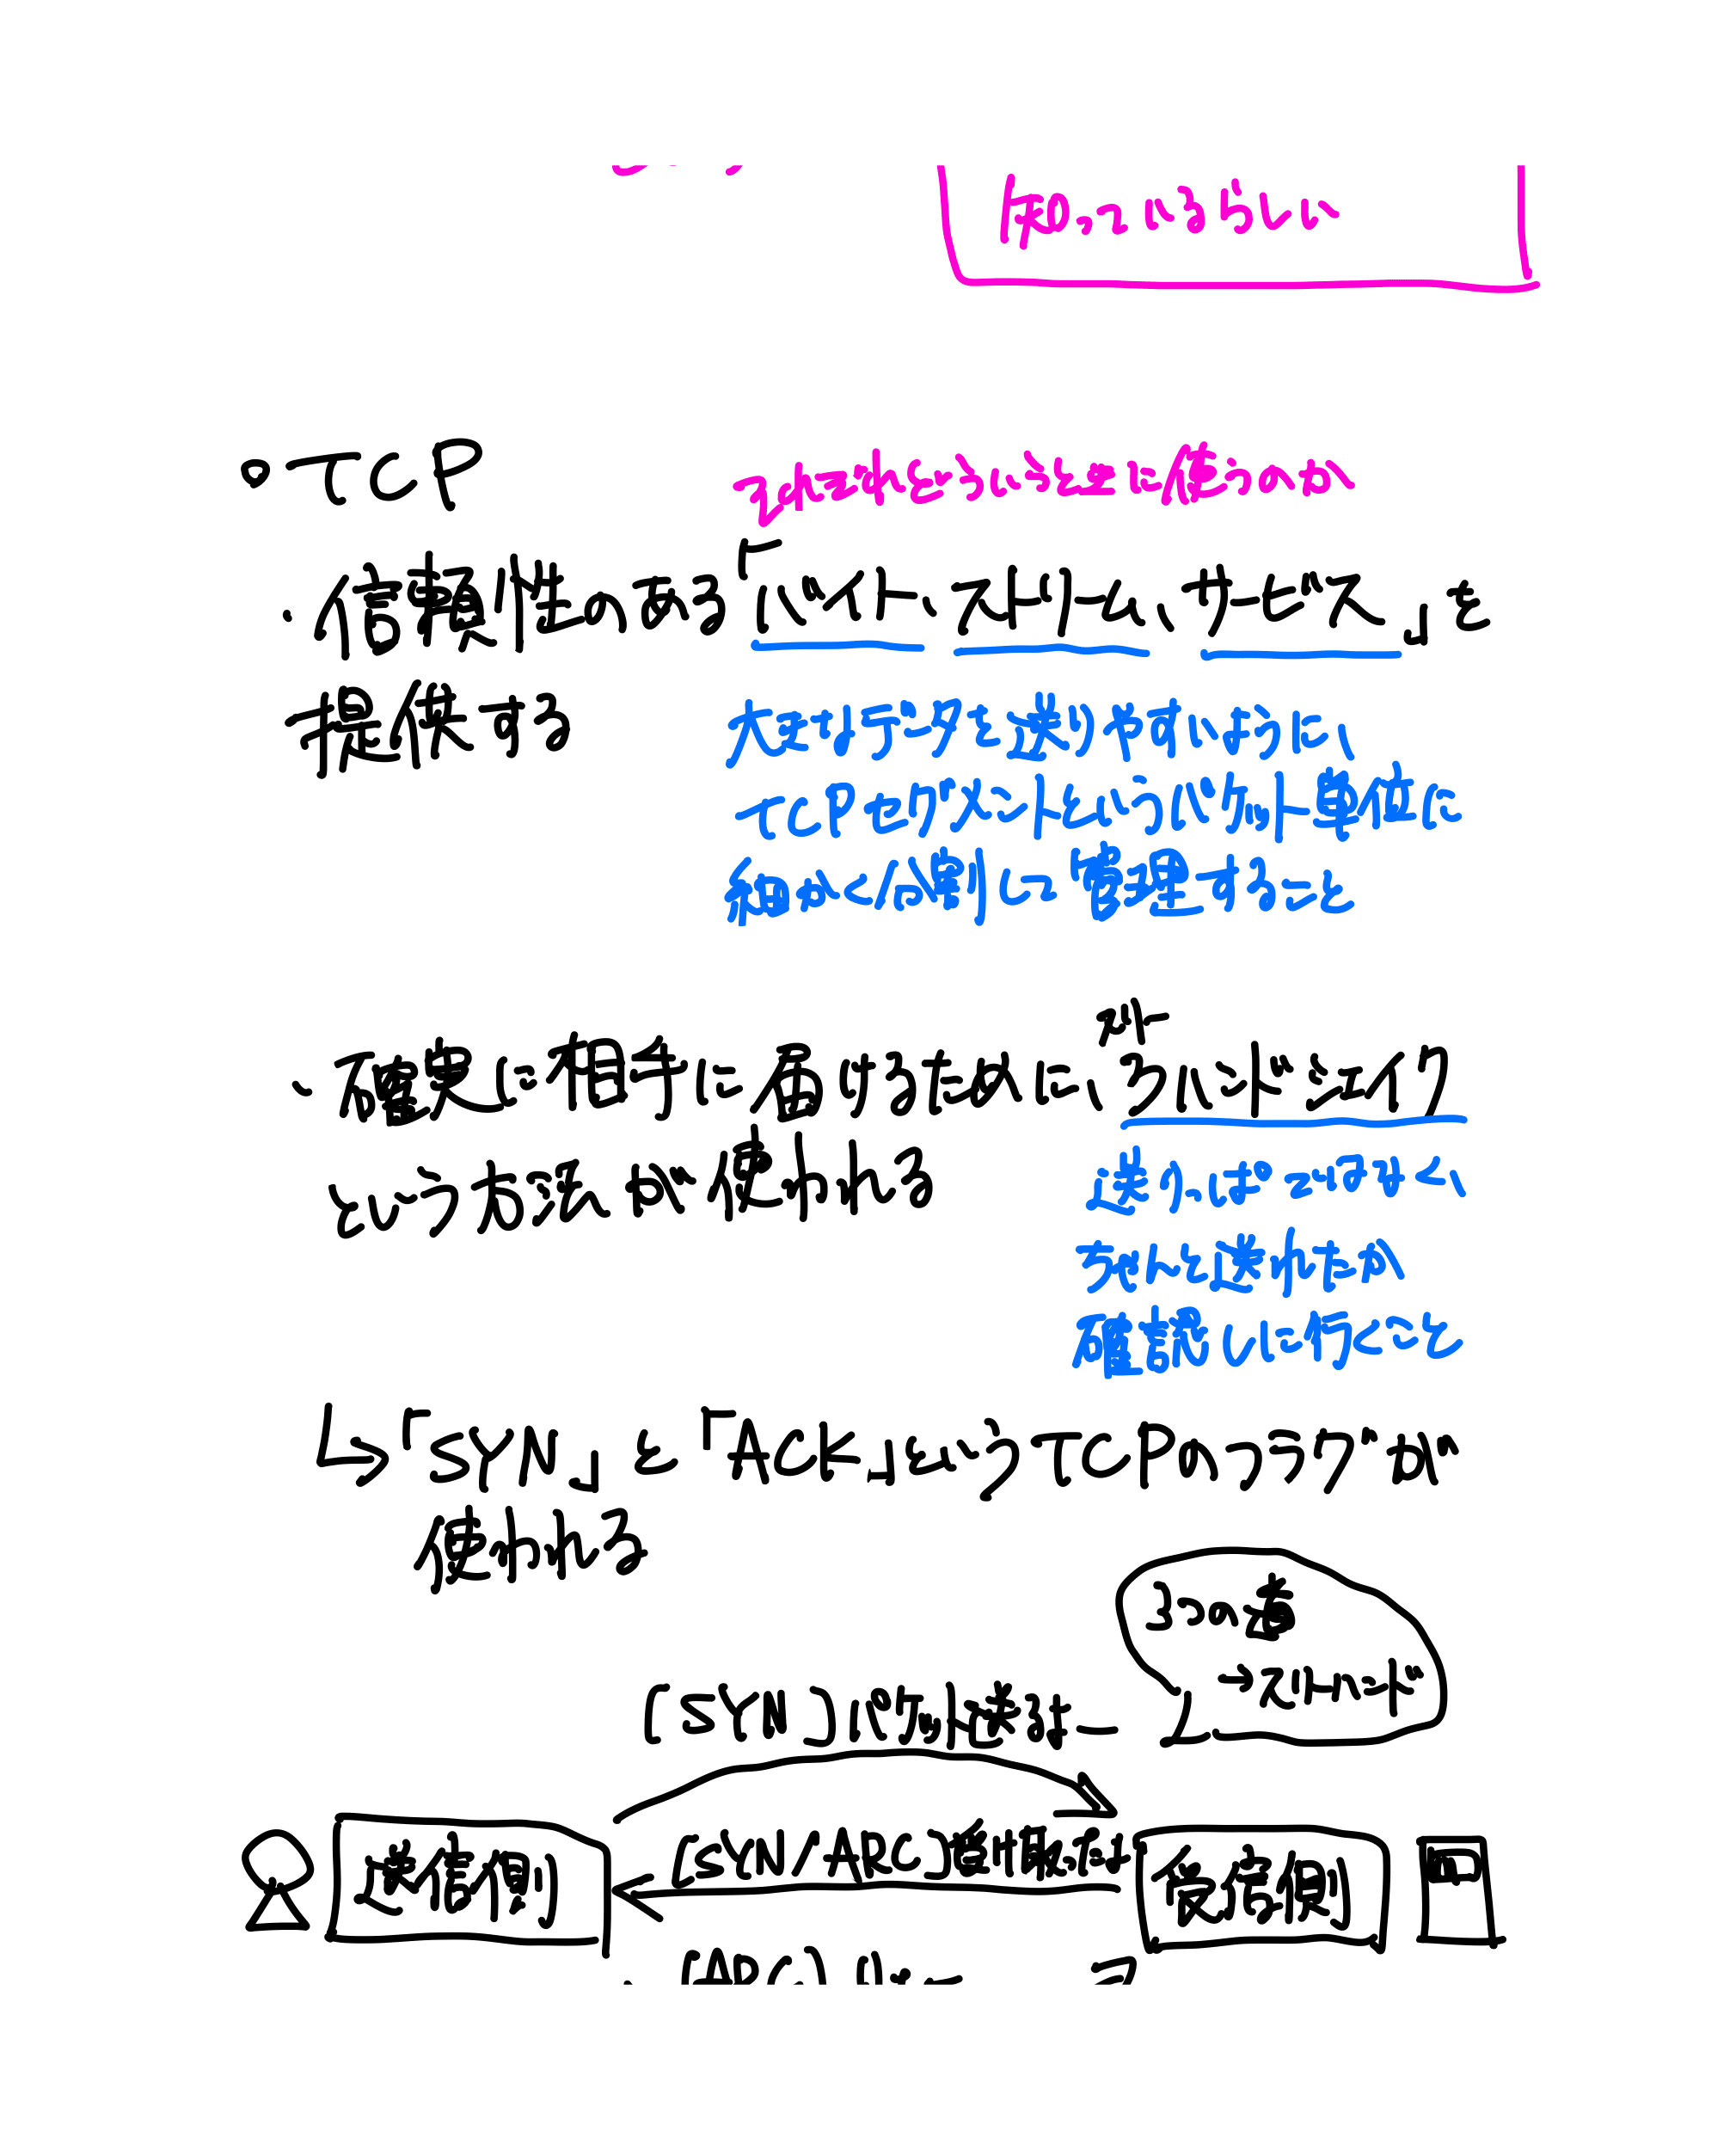 知っているらしい
。TCP
それぞれどういうときに使うのか
・信頼性のある「バイト、ストリーム、サービス」を
提供する
大きなデータを送りやすいように、
TCPセグメントというパケット単位に
細かく分割して管理すること
・確実に相手に届けるために、3ハンドシェイク
スリー
という方法が使われる
送りっぱなしではなく、
ちゃんと送れたか
確認しに行くこと
↳「SYN」と「ACK」というTCPのフラグが
使われる
3つの
→スリーハンド
[SYN]パケット送るよー
[SYN/ARC]受け取ったよ
送信側
受信側
[ARC]